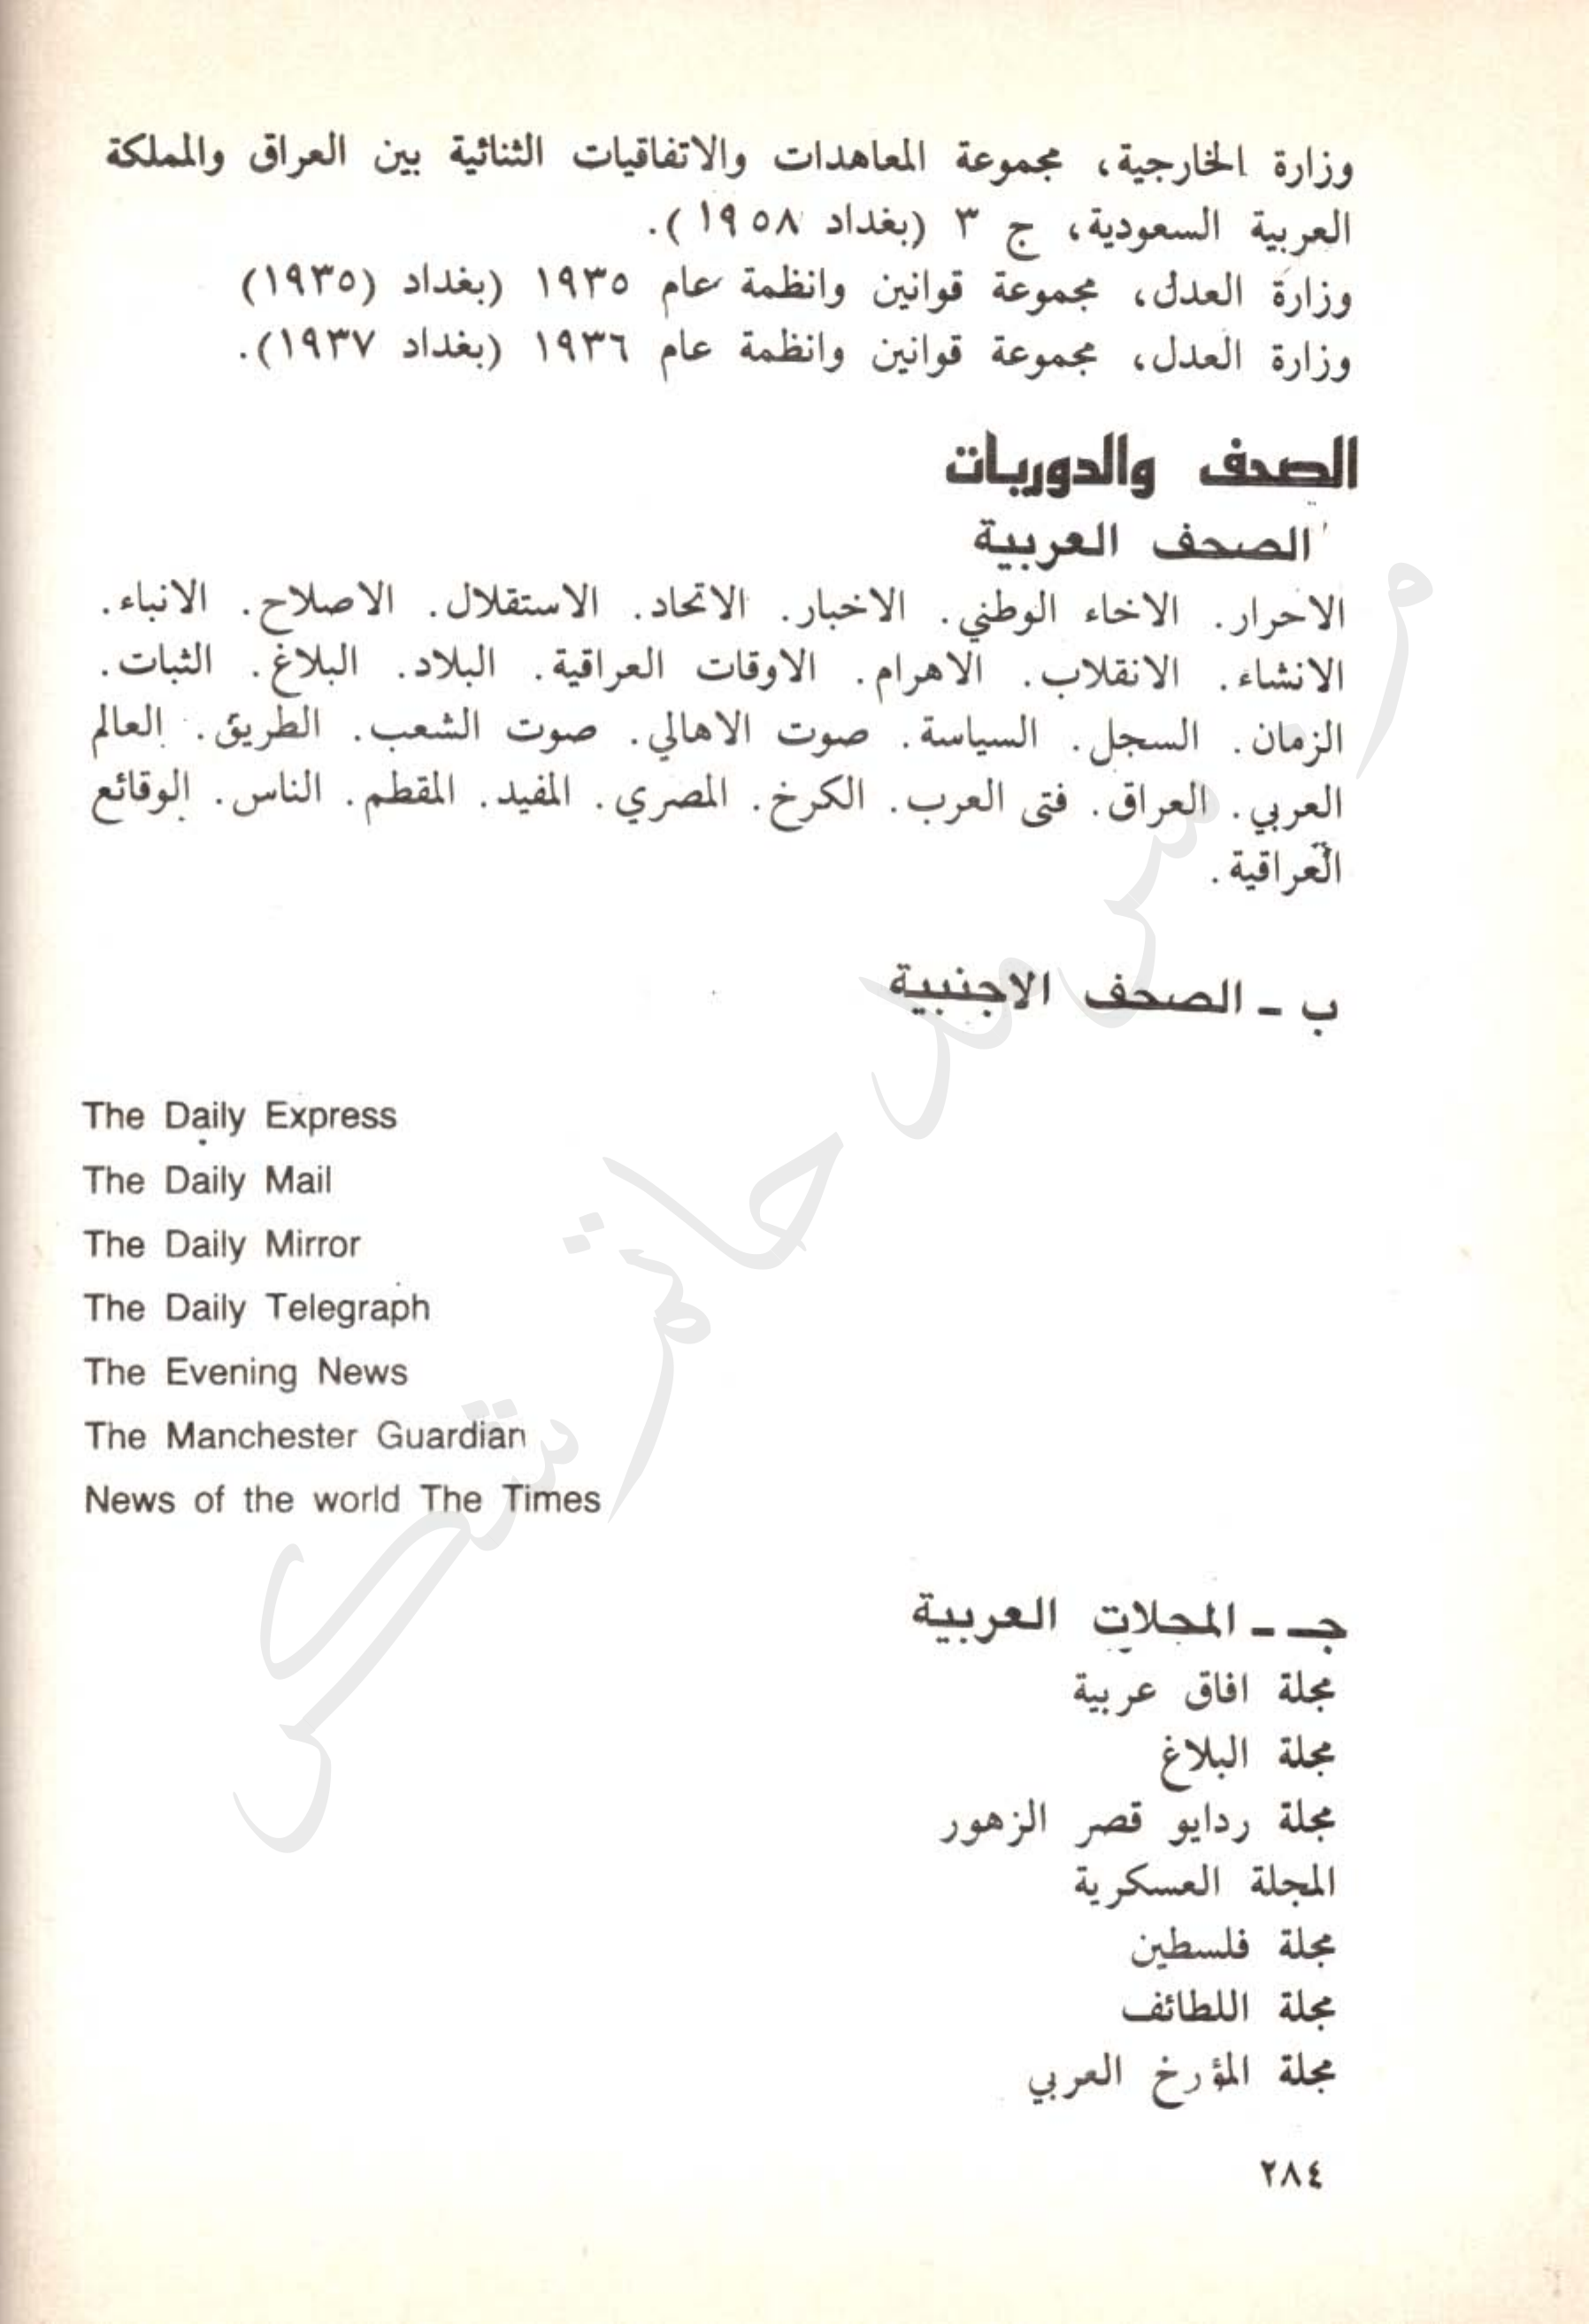 وزارة الخارجية، مجموعة المعاهدات والاتفاقيات الثنائية بين العراق والمملكة
العربية السعودية، ج ٣ (بغداد ١٩٥٨).
وزارة العدل، مجموعة قوانين وانظمة عام ١٩٣٥ (بغداد (١٩٣٥)
وزارة العدل، مجموعة قوانين وانظمة عام ١٩٣٦ (بغداد ١٩٣٧).
الصحف والدوريات
الصحف العربية
الاحرار. الاخاء الوطني. الاخبار. الاتحاد. الاستقلال. الاصلاح. الانباء.
الانشاء. الانقلاب. الاهرام. الاوقات العراقية. البلاد. البلاغ. الثبات.
الزمان. السجل. السياسة. صوت الاهالي. صوت الشعب. الطريق. العالم
العربي. العراق. فتى العرب. الكرخ. المصري. المفيد. المقطم. الناس. الوقائع
العراقية.
ب - الصحف الاجنبية
The Daily Express
The Daily Mail
The Daily Mirror
The Daily Telegraph
The Evening News
The Manchester Guardian
News of the world The Times
جـ - المجلات العربية
مجلة افاق عربية
مجلة البلاغ
مجلة ردايو قصر الزهور
المجلة العسكرية
مجلة فلسطين
مجلة اللطائف
مجلة المؤرخ العربي
٢٨٤